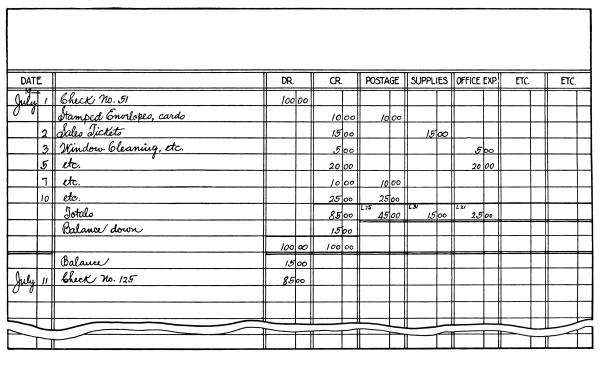 DATE DR. CR. POSTAGE SUPPLIES OFFICE EXP. ETC. ETC.
19
July 1 Check No. 51 100 00
Stamped Envelopes, cards 10 00 10 00
2 Sales Tickets 15 00 15 00
3 Window Cleaning, etc. 5 00 5 00
5 etc. 20 00 20 00
7 etc. 10 00 10 00
10 etc. 25 00 25 00
Totals 85 00 L25 45 00 L31 15 00 L21 25 00
Balance down 15 00
100 00 100 00
Balance 15 00
July 11 Check No. 125 85 00